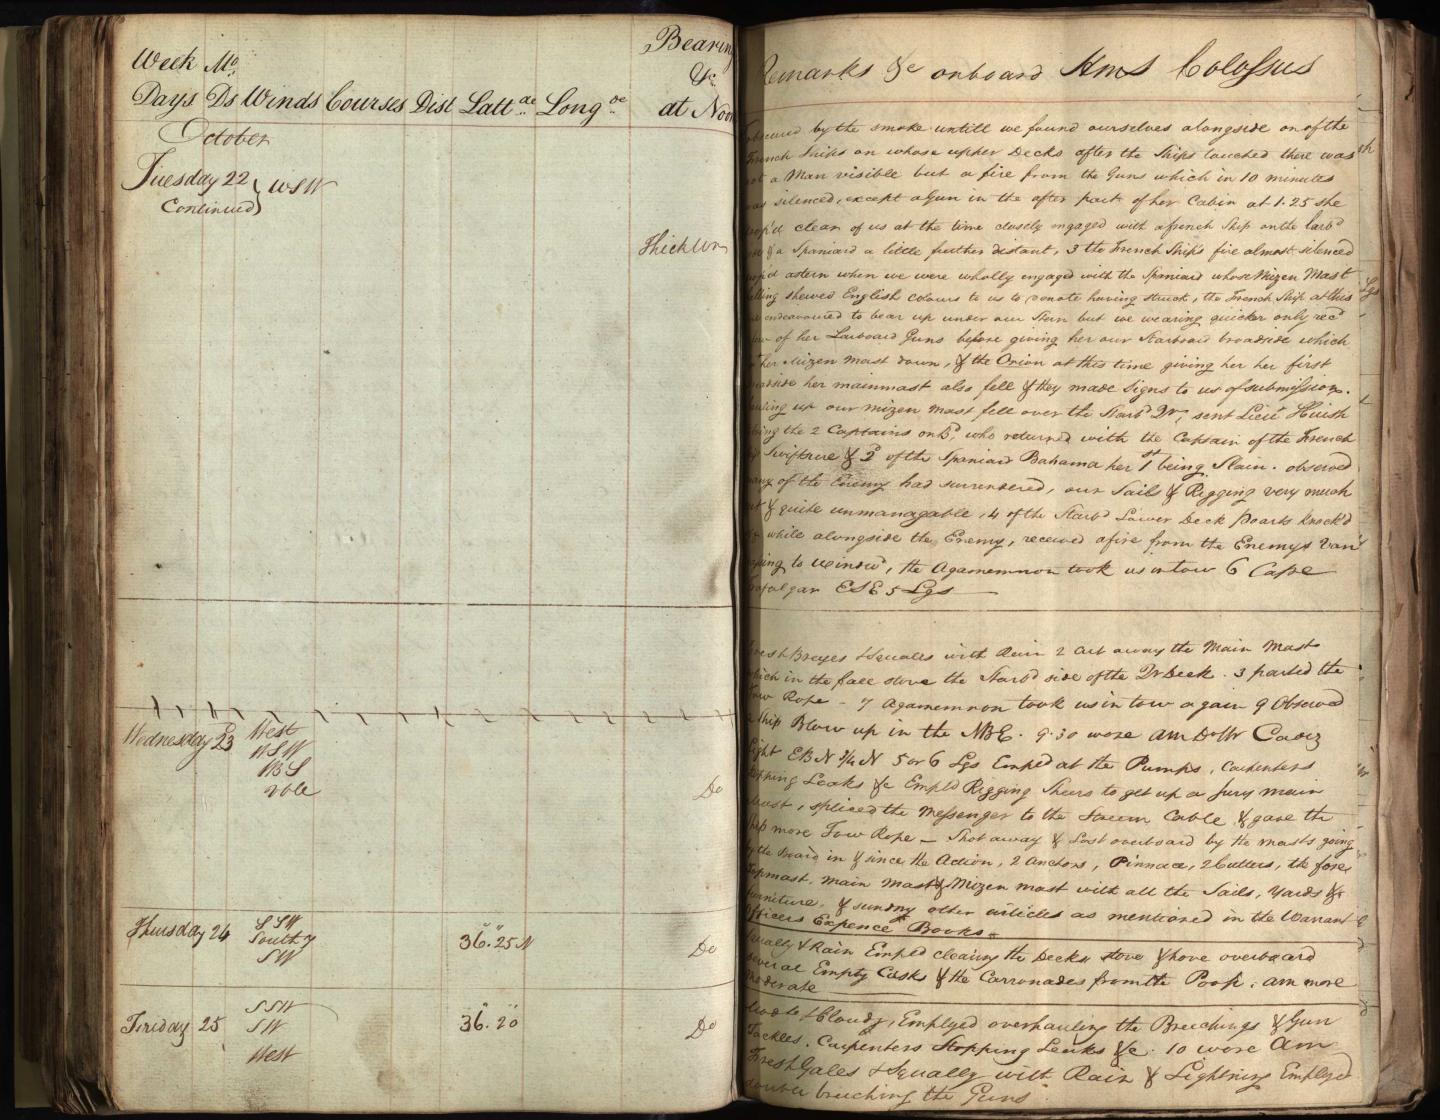 Week Mo
Days Ds Winds Courses Dist Lattde Longde
Bearing
&c
at Noon
October
Tuesday 22 } WSW
Continued
Thick Wr
Wednesday 23 West
WSW
WBS
vble
Do
Thursday 24 SSW
South
SW
36.25 N
Do
Friday 25 SSW
SW
West
36.20
Do
Remarks &c onboard HMS Colossus
obscured by the smoke untill we found ourselves alongside on of the
French Ships on whose upper Decks after the Ships touched there was
not a Man visible but a fire from the Guns which in 10 minutes
was silenced, except a Gun in the after part of her Cabin at 1.25 she
drop'd clear of us at the time closely engaged with a french Ship on the larbd
& a Spaniard a little further distant, 3 the French Ships fire almost silenced
drop'd astern when we were wholly engaged with the Spaniard whose Mizen Mast
falling shewed English Colours to us to denote having struck, the French Ship at this
endeavoured to bear up under our Stern but we wearing quicker only recd
few of her Larboard Guns before giving her our Starboard broadside which
her Mizen mast down, & the Orion at this time giving her her first
broadside her mainmast also fell & they made Signs to us of submission.
hauling up our mizen mast fell over the Starbd Qr, sent Lieut Huish
bring the 2 Captains onbd, who returned with the Captain of the French
Swiftsure & 2d of the Spaniard Bahama her 1st being Slain. observed
many of the Enemy had surrendered, our Sails & Rigging very much
cut & quite unmanagable, 4 of the Starbd Lower Deck Poarts knock'd
while alongside the Enemy, received a fire from the Enemys Van
passing to windwd, the Agamemnon took us in tow 6 Cape
Trafalgar ESE 5 Lgs
Fresh Breezes & Squales with Rain 2 Cut away the Main Mast
which in the fall stove the Starbd side of the Qr Deck. 3 parted the
Tow Rope - 7 Agamemnon took us in tow again 9 Observed
a Ship Blow up in the NBE. 9.30 wore AM Do Wr Cadiz
Light EBN 3/4 N 5 or 6 Lgs Empd at the Pumps, Carpenters
stopping Leaks &c Empld Rigging Sheers to get up a Jury main
Mast, spliced the Messenger to the Stream Cable & gave the
Ship more Tow Rope - Shot away & Lost overboard by the masts going
by the Board in & since the Action, 2 Anchors, Pinnace, 2 Cutters, the fore
topmast, main Mast & Mizen mast with all the Sails, Yards &
furniture, & sundry other articles as mentioned in the Warrant
Officers Expence Books.
Squally & Rain Empld clearing the Decks stove & hove overboard
several Empty Casks & the Carronades from the Poop. am more
moderate
Modte & Cloudy, Employed overhauling the Breechings & Gun
Tackles. Carpenters Stopping Leaks &c. 10 wore Am
Fresh Gales & Squally with Rain & Lightning Employed
double breeching the Guns